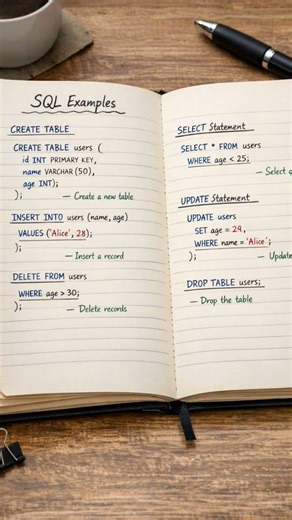 SQL Examples
CREATE TABLE
CREATE TABLE users (
id INT PRIMARY KEY,
name VARCHAR (50),
age INT);
);
— Create a new table
INSERT INTO users (name, age)
VALUES ('Alice', 28);
);
— Insert a record
DELETE FROM users
WHERE age > 30;
);
— Delete records
SELECT Statement
SELECT * FROM users
WHERE age < 25;
— Select
UPDATE Statement
UPDATE users
SET age = 29,
WHERE name = 'Alice';
);
— Update
DROP TABLE users;
— Drop the table